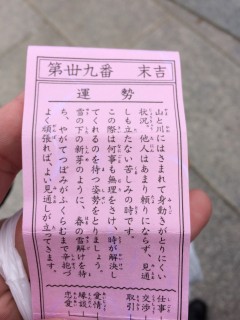 第丗九番　末吉
運勢
山と川にはさまれて身動きがとりにくい
状況。他人はあまり頼りにならず、見通
しも立たない苦しみの時です。
この際は何事も無理をさけ、時が解決し
てくれるのを待つ姿勢をとりましょう。
雪の下の新芽のように、春の雪解けを待
ち、やがてつぼみがふくらむまで辛抱づ
よく頑張れば、よい見通しが立ってきます。
仕事
交渉
取引
愛情
縁談
恋愛